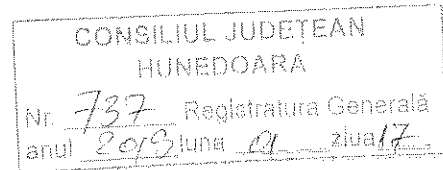 CONSILIUL JUDEȚEAN
HUNEDOARA
Nr. 737 Registratura Generală
anul luna 01 ziua 17